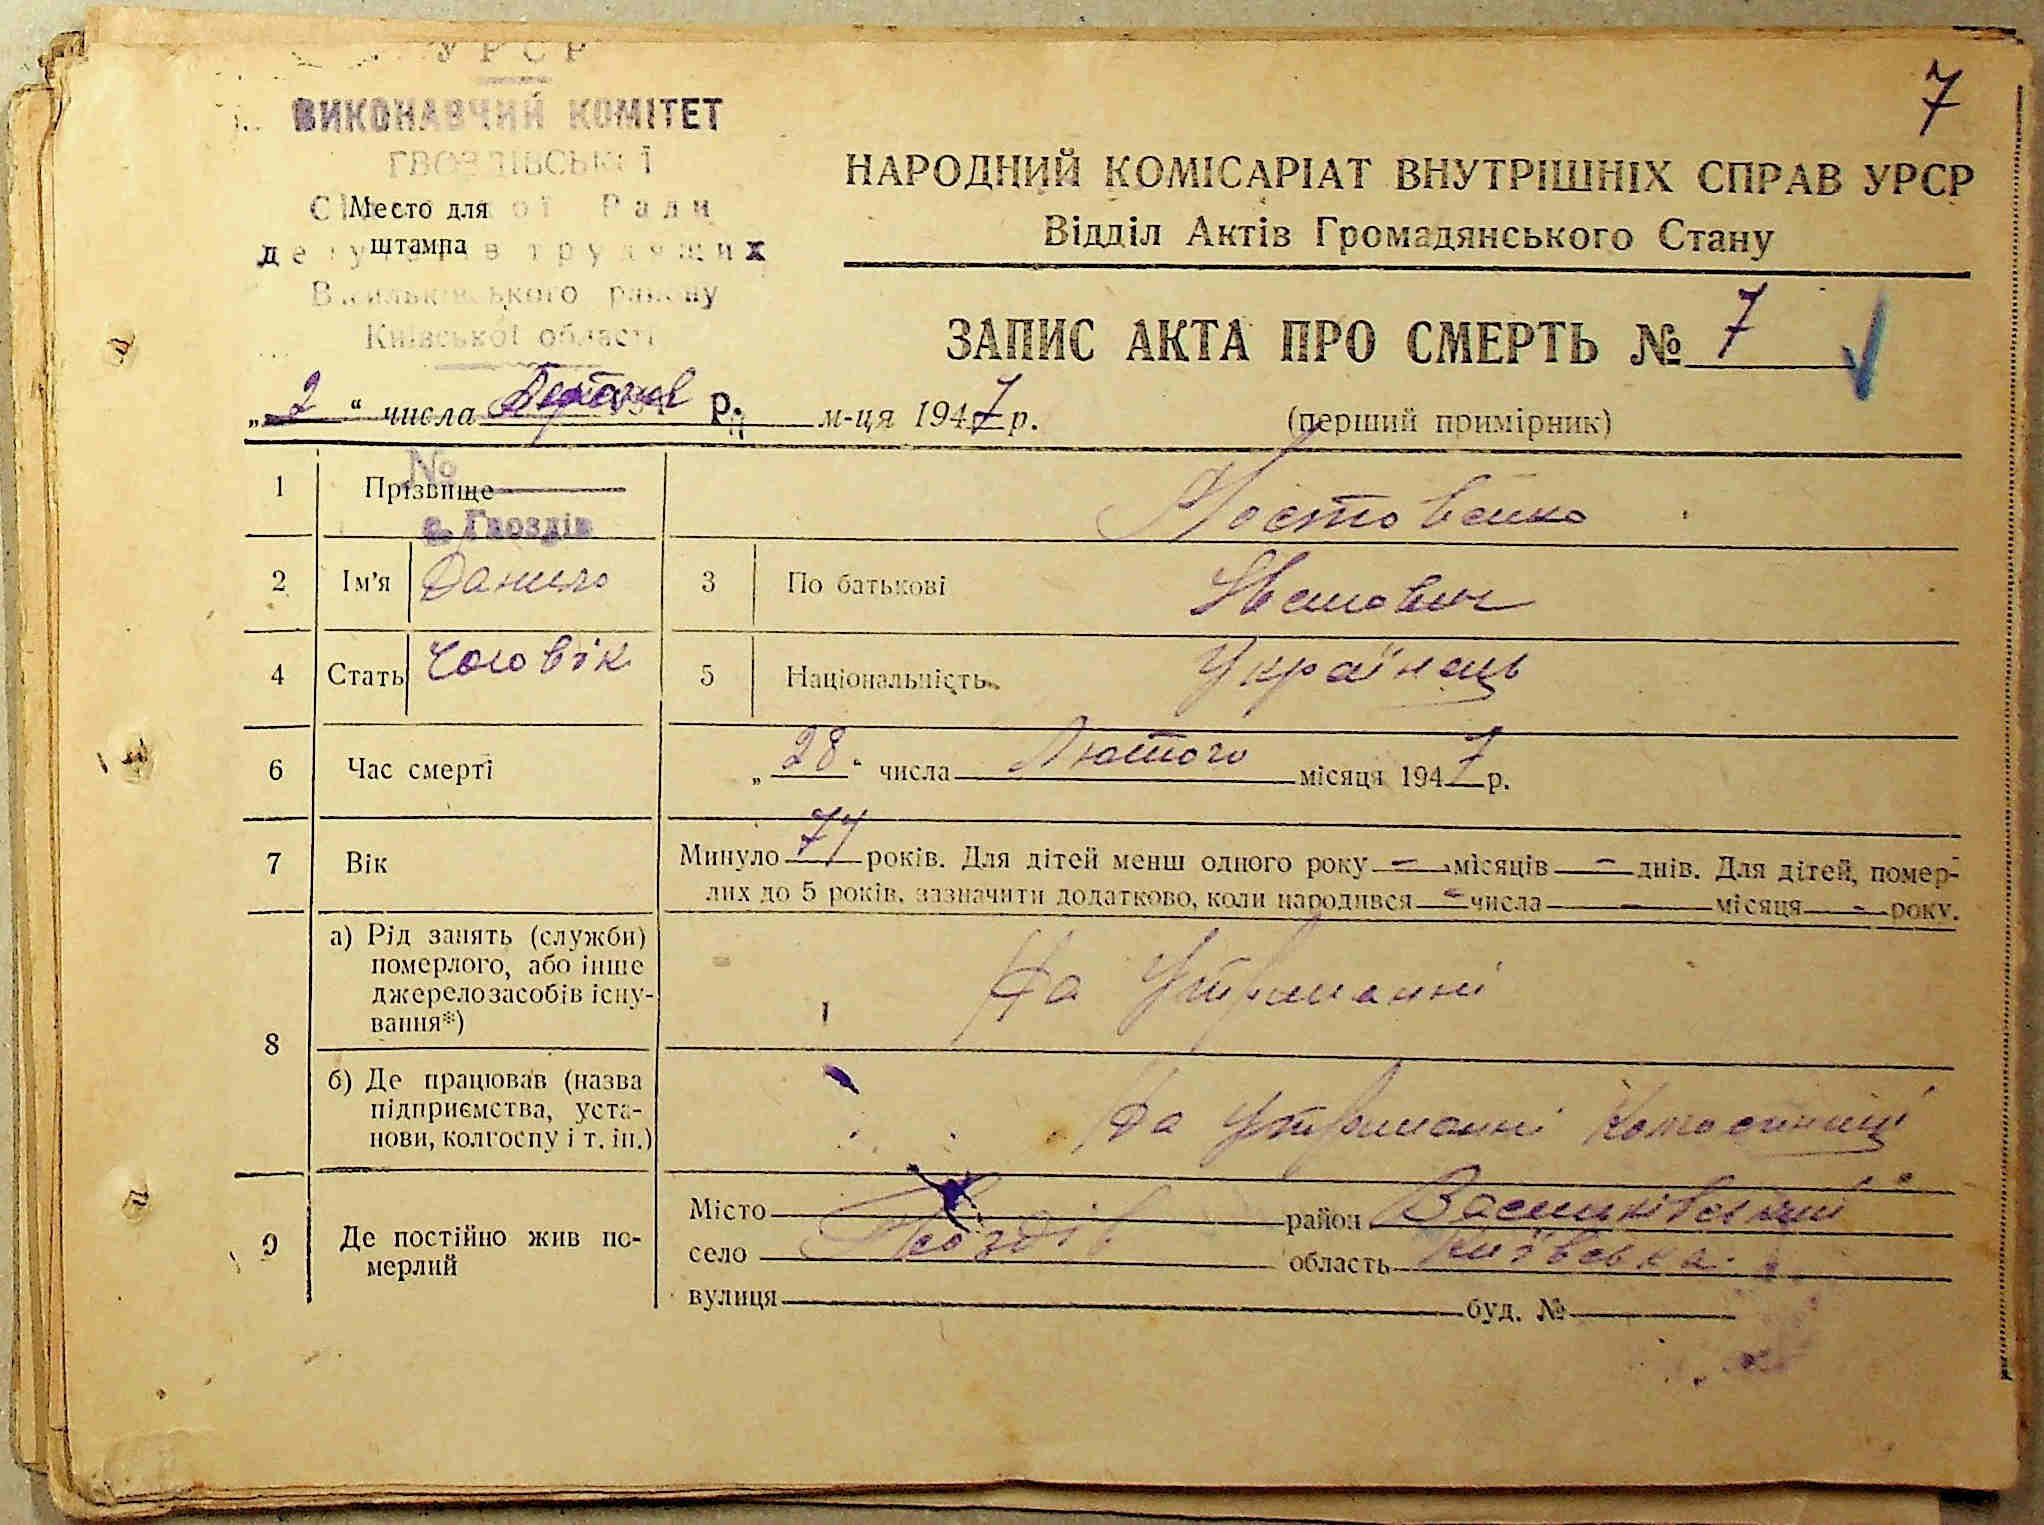 7
УРСР
ВИКОНАВЧИЙ КОМІТЕТ
ГВОЗДІВСЬКОЇ
Сільської Ради
депутатів трудящих
Васильківського району
Київської області
Место для
штампа
№
с. Гвоздів
НАРОДНИЙ КОМІСАРІАТ ВНУТРІШНІХ СПРАВ УРСР
Відділ Актів Громадянського Стану
ЗАПИС АКТА ПРО СМЕРТЬ № 7
„2“ числа Березня р. м-ця 1947 р.
(перший примірник)
1 Прізвище Мостовенко
2 Ім'я Данило 3 По батькові Іванович
4 Стать Чоловік 5 Національність Українець
6 Час смерті „28“ числа Лютого місяця 1947 р.
7 Вік Минуло 77 років. Для дітей менш одного року – місяців – днів. Для дітей, помер-
лих до 5 років, зазначити додатково, коли народився – числа – місяця – року.
8
а) Рід занять (служби)
померлого, або інше
джерело засобів існу-
вання*)
На Утриманні
б) Де працював (назва
підприємства, уста-
нови, колгоспу і т. ін.)
На Утриманні
9 Де постійно жив по-
мерлий
Місто район Васильківський
село Гвоздів область Київська
вулиця буд. №